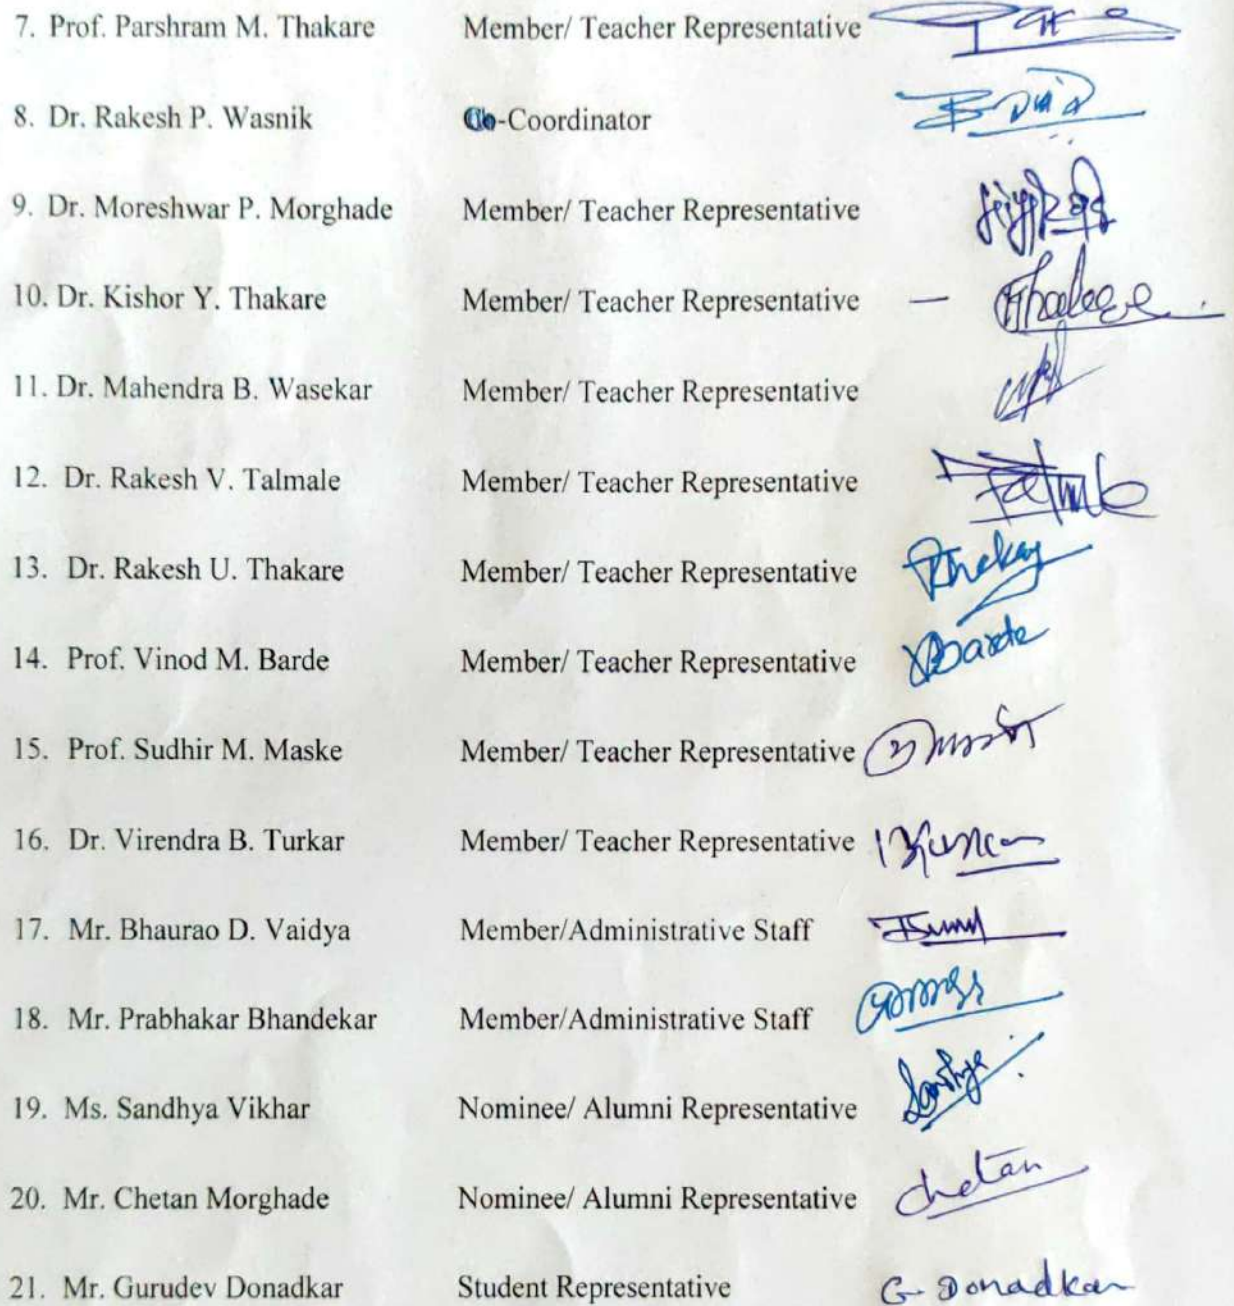 7. Prof. Parshram M. Thakare Member/ Teacher Representative
8. Dr. Rakesh P. Wasnik Co-Coordinator
9. Dr. Moreshwar P. Morghade Member/ Teacher Representative
10. Dr. Kishor Y. Thakare Member/ Teacher Representative —
11. Dr. Mahendra B. Wasekar Member/ Teacher Representative
12. Dr. Rakesh V. Talmale Member/ Teacher Representative
13. Dr. Rakesh U. Thakare Member/ Teacher Representative
14. Prof. Vinod M. Barde Member/ Teacher Representative Barde
15. Prof. Sudhir M. Maske Member/ Teacher Representative
16. Dr. Virendra B. Turkar Member/ Teacher Representative
17. Mr. Bhaurao D. Vaidya Member/Administrative Staff
18. Mr. Prabhakar Bhandekar Member/Administrative Staff
19. Ms. Sandhya Vikhar Nominee/ Alumni Representative
20. Mr. Chetan Morghade Nominee/ Alumni Representative Chetan
21. Mr. Gurudev Donadkar Student Representative G. Donadkar